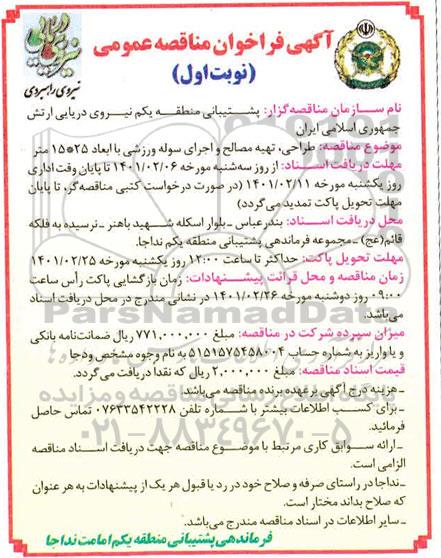 آگهی فراخوان مناقصه عمومی
(نوبت اول)
نیروی دریایی
نیروی راهبردی
نام سازمان مناقصه‌گزار: پشتیبانی منطقه یکم نیروی دریایی ارتش
جمهوری اسلامی ایران
موضوع مناقصه: طراحی، تهیه مصالح و اجرای سوله ورزشی با ابعاد ۲۵*۱۵ متر
مهلت دریافت اسناد: از روز سه‌شنبه مورخه ۱۴۰۱/۰۲/۰۶ تا پایان وقت اداری
روز یکشنبه مورخه ۱۴۰۱/۰۲/۱۱ (در صورت درخواست کتبی مناقصه‌گر، تا پایان
مهلت تحویل پاکت تمدید می‌گردد)
محل دریافت اسناد: بندرعباس ـ بلوار اسکله شهید باهنر ـ نرسیده به فلکه
قائم(عج) ـ مجموعه فرماندهی پشتیبانی منطقه یکم نداجا.
مهلت تحویل پاکت: حداکثر تا ساعت ۱۲:۰۰ روز یکشنبه مورخه ۱۴۰۱/۰۲/۲۵
زمان مناقصه و محل قرائت پیشنهادات: زمان بازگشایی پاکت رأس ساعت
۰۹:۰۰ روز دوشنبه مورخه ۱۴۰۱/۰۲/۲۶ در نشانی مندرج در محل دریافت اسناد
می‌باشد.
میزان سپرده شرکت در مناقصه: مبلغ ۷۷۱,۰۰۰,۰۰۰ ریال ضمانت‌نامه بانکی
و یا واریز به شماره حساب ۵۱۵۱۵۷۵۴۵۸۰۰۴ به نام وجوه مشخص ودجا
قیمت اسناد مناقصه: مبلغ ۲,۰۰۰,۰۰۰ ریال که نقدا دریافت می‌گردد.
ـ هزینه درج آگهی برعهده برنده مناقصه می‌باشد.
ـ برای کسب اطلاعات بیشتر با شماره تلفن ۰۷۶۳۳۵۴۲۲۲۸ تماس حاصل
فرمائید.
ـ ارائه سوابق کاری مرتبط با موضوع مناقصه جهت دریافت اسناد مناقصه
الزامی است.
ـ نداجا در راستای صرفه و صلاح خود در رد یا قبول هر یک از پیشنهادات به هر عنوان
که صلاح بداند مختار است.
ـ سایر اطلاعات در اسناد مناقصه مندرج می‌باشد.
فرماندهی پشتیبانی منطقه یکم امامت نداجا
ParsNamadData
۰۲۱-۸۸۳۴۹۶۷۰-۵